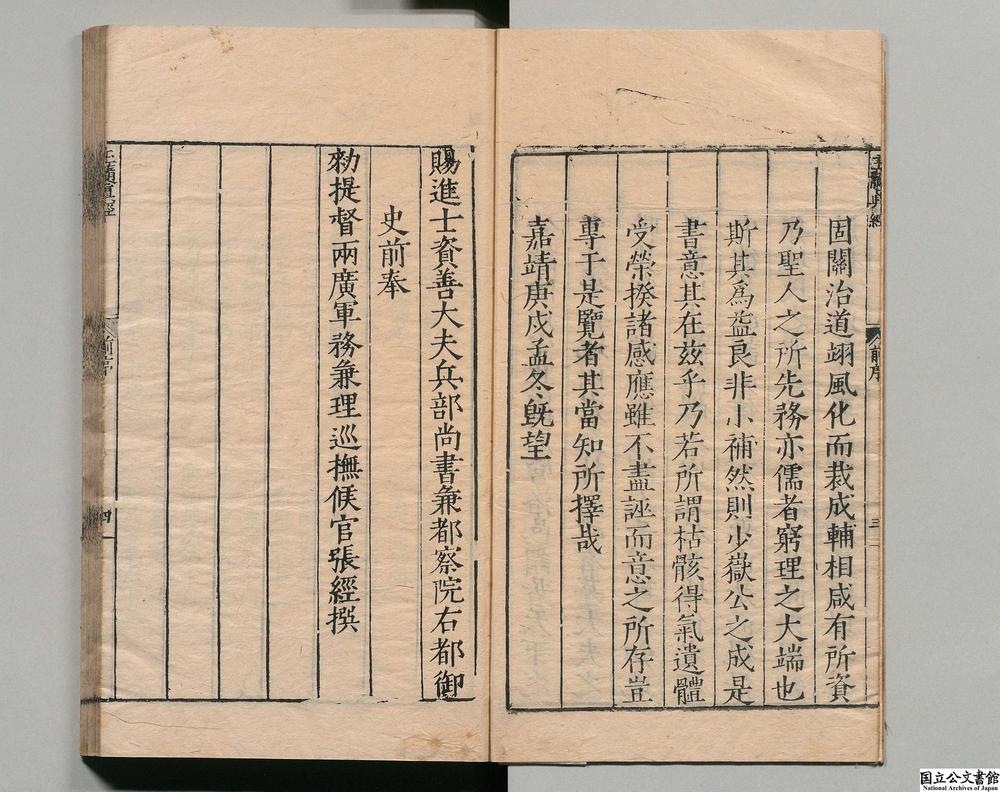 固關治道翊風化而裁成輔相咸有所資
乃聖人之所先務亦儒者窮理之大端也
斯其為益良非小補然則少嶽公之成是
書意其在茲乎乃若所謂枯骸得氣遺體
受榮揆諸感應雖不盡誣而意之所存豈
專于是覽者其當知所擇哉
嘉靖庚戌孟冬旣望
前序
三
賜進士資善大夫兵部尚書兼都察院右都御
史前奉
勑提督兩廣軍務兼理巡撫候官張經撰
前序
四
国立公文書館
National Archives of Japan